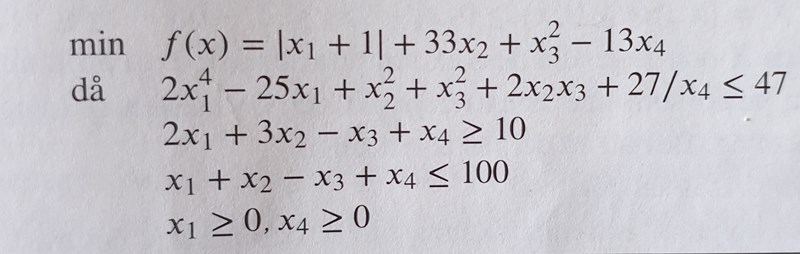 min f(x) = |x₁ + 1| + 33x₂ + x₃² − 13x₄
då 2x₁⁴ − 25x₁ + x₂² + x₃² + 2x₂x₃ + 27/x₄ ≤ 47
2x₁ + 3x₂ − x₃ + x₄ ≥ 10
x₁ + x₂ − x₃ + x₄ ≤ 100
x₁ ≥ 0, x₄ ≥ 0